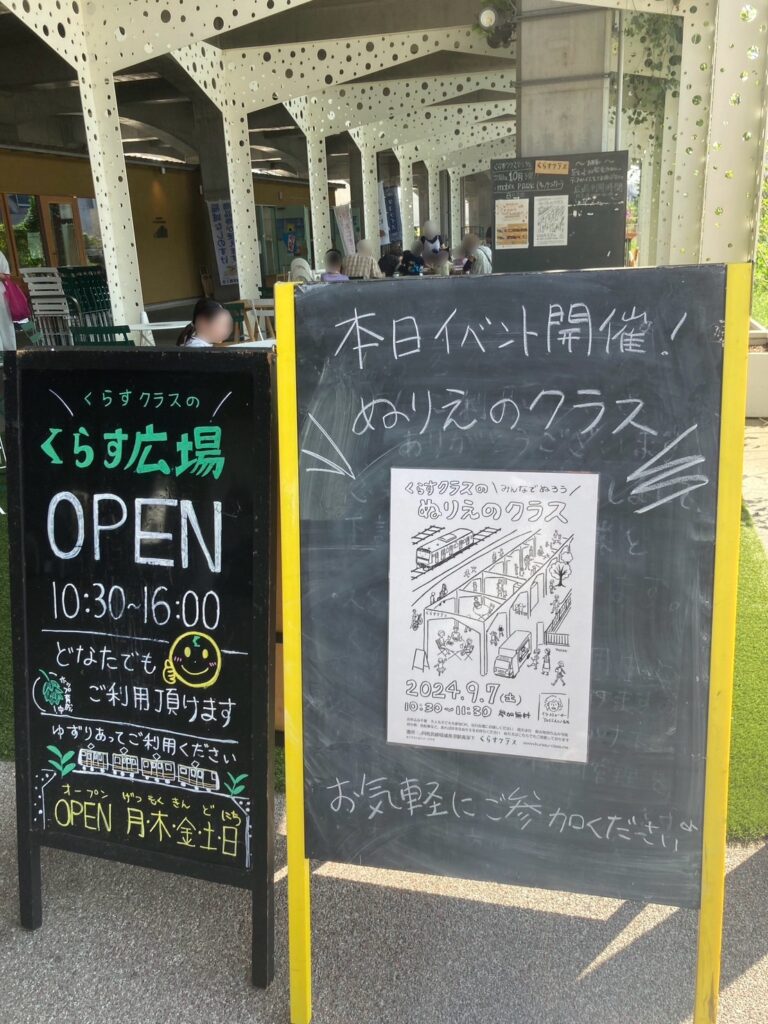 くらすクラスの
くらす広場
OPEN
10:30~16:00
どなたでも
ご利用頂けます
ゆずりあってご利用ください
オープン げつ もく きん ど にち
OPEN 月・木・金・土・日
本日イベント開催!
ぬりえのクラス
くらすクラスの\みんなでぬろう/
ぬりえのクラス
2024.9.7(土)
10:30~11:30 参加無料
くらすクラス
お気軽にご参加ください
くらすクラス
10月